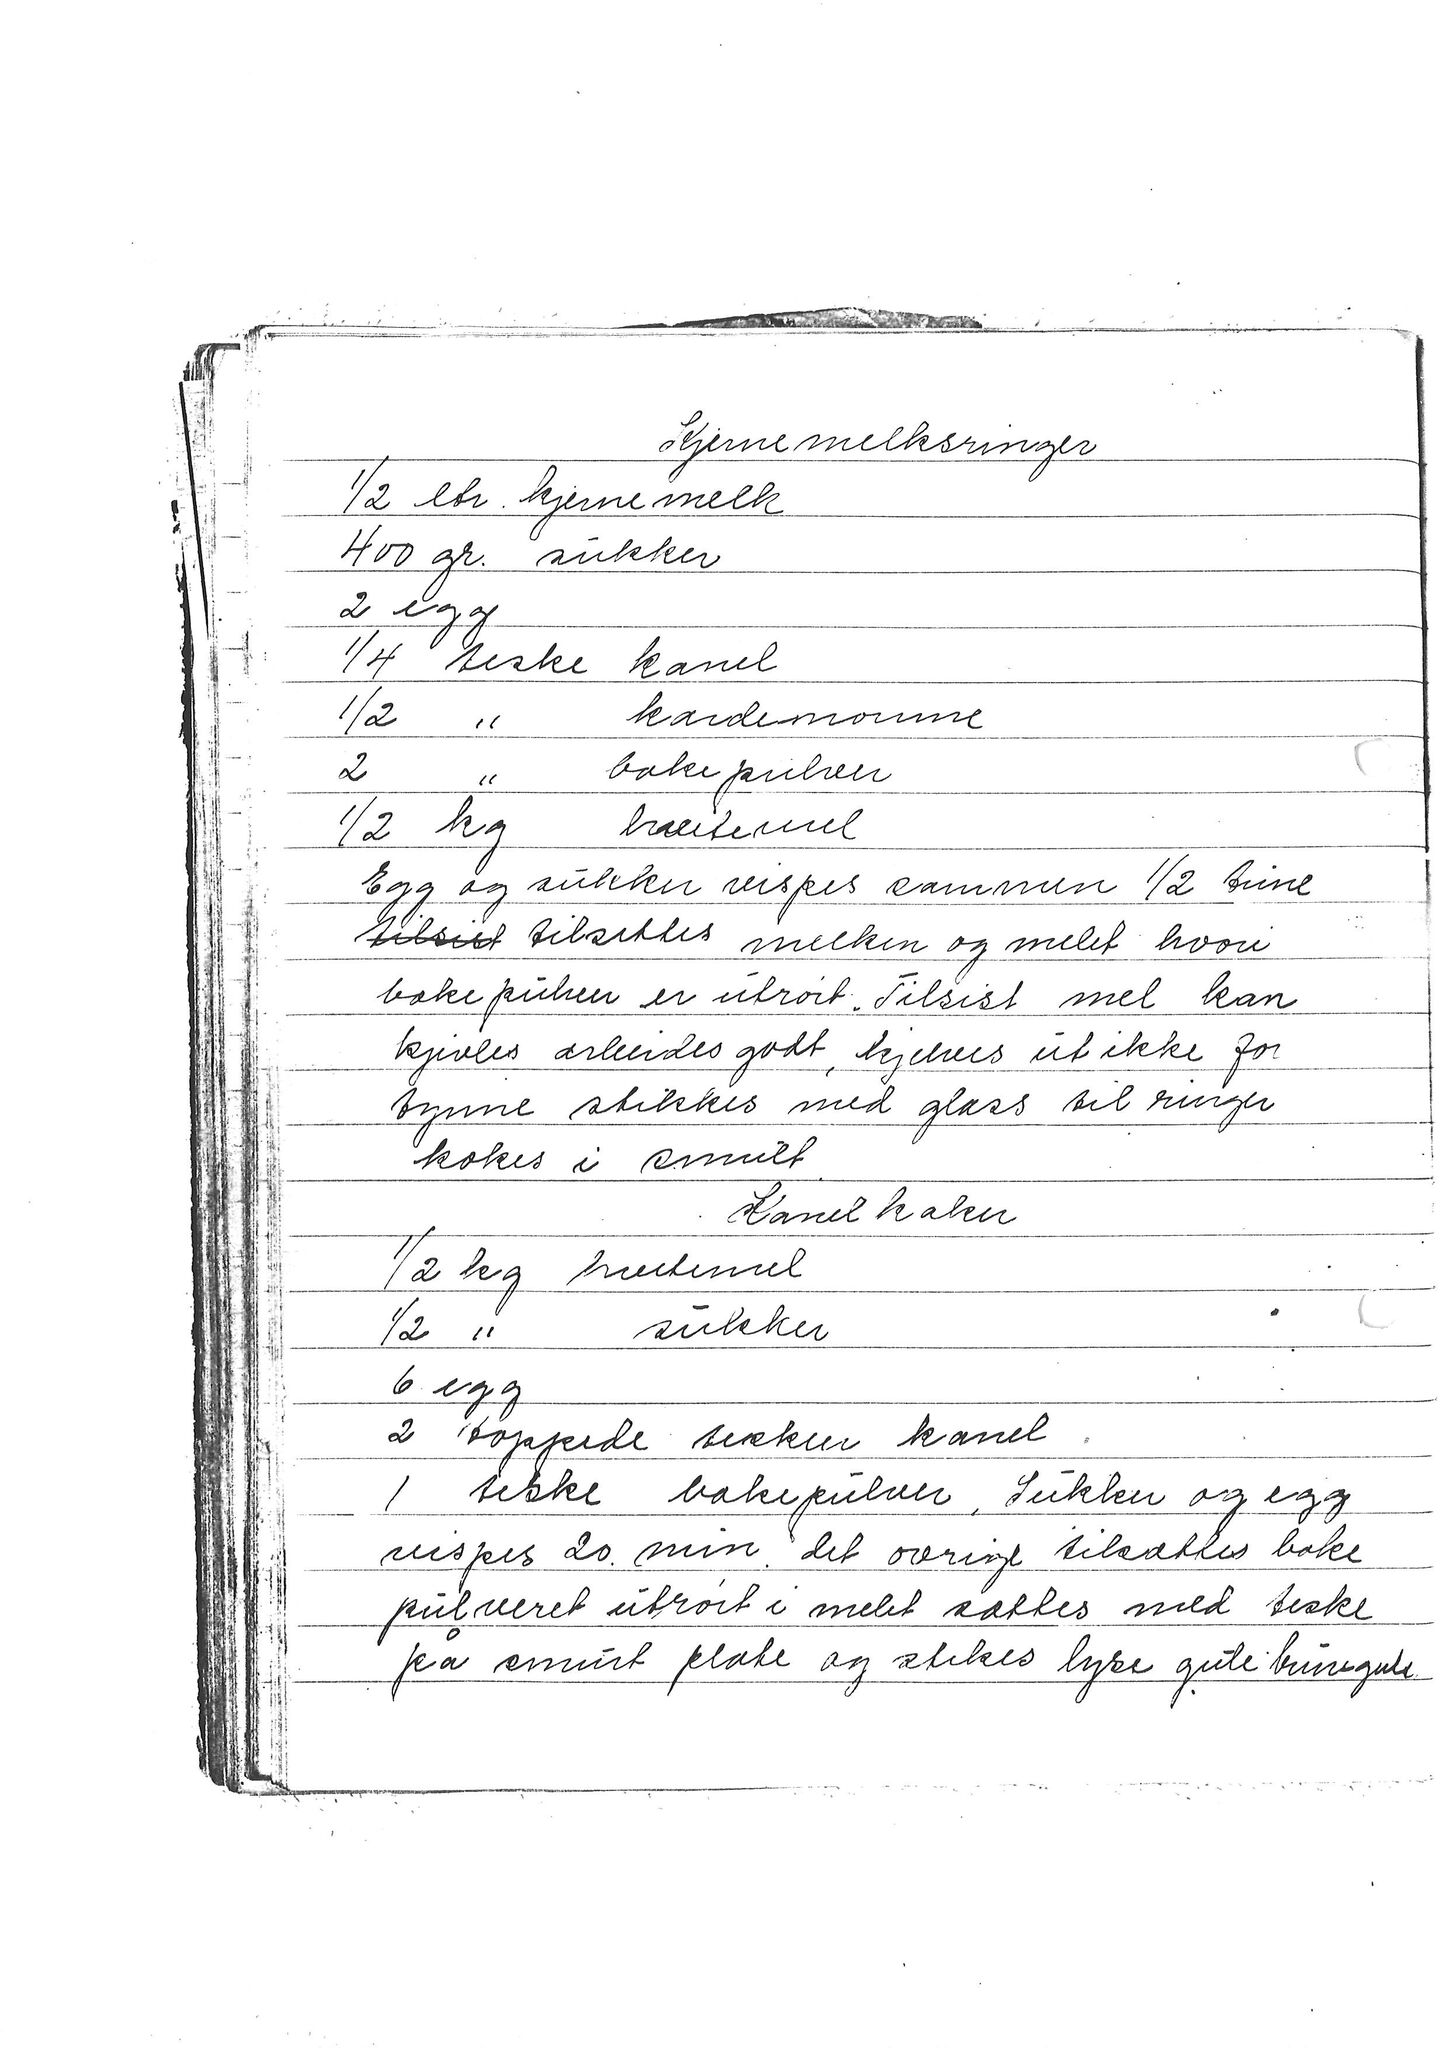 Kjernemelksringer
1/2 ltr. kjernemelk
400 gr. sukker
2 egg
1/4 teske kanel
1/2 " kardemomme
2 " bakepulver
1/2 kg hvetemel
Egg og sukker vispes sammen 1/2 time
tilsist tilsettes melken og melet hvori
bakepulver er utrört. Tilsist mel kan
kjevles arbeides godt, kjelves ut ikke for
tynne stikkes med glass til ringer
kokes i smult
Kanelkaker
1/2 kg hvetemel
1/2 " sukker
6 egg
2 toppede teskeer kanel
1 teske bakepulver, Sukker og egg
vispes 20. min. det øvrige tilsættes bake
pulveret utrört i melet sættes med teske
på smurt plate og stekes lyse gule